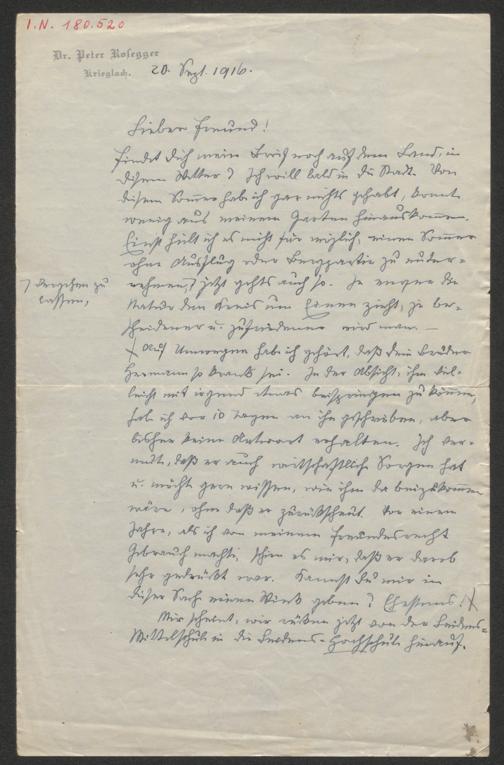 I.N. 180.520
Dr. Peter Rosegger
Krieglach.
20. Sept. 1916.
Lieber Freund!
Findet Dich mein Brief noch auf dem Land, in
diesem Wetter? Ich will bald in die Stadt. Von
diesem Sommer hab ich gar nichts gehabt, konnte
wenig aus meinem Garten hinauskommen.
Einst hielt ich es nicht für möglich, einen Sommer
ohne Ausflug oder Bergpartie zu
jetzt gehts auch so. Je enger die
Natur den Kreis um Einen zieht, je be-
scheidener u. zufriedener wird man. —
vergehen zu
lassen,
Auf Umwegen hab ich gehört, daß Dein Bruder
Hermann so krank sei. In der Absicht, ihm viel-
leicht mit irgend etwas beispringen zu können,
hab ich vor 10 Tagen an ihn geschrieben, aber
bisher keine Antwort erhalten. Ich ver-
mute, daß er auch wirtschaftliche Sorgen hat
u. möchte gern wissen, wie ihm da beizukommen
wäre, ohne daß er zurückscheut. Vor einem
Jahre, als ich von meinem Freundesrecht
Gebrauch machte, schien es mir, daß er darob
sehr gedrückt war. Kannst Du mir in
dieser Sach einen Wink geben? Ehestens!
Mir scheint, wir rücken jetzt von der Leidens-
Mittelschule in die Leidens-Hochschule hinauf.